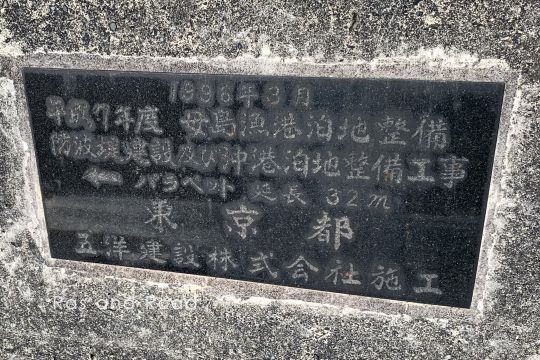 1996年3月
平成7年度 母島漁港泊地整備
防波堤建設及び沖港泊地整備工事
← パラペット 延長 32m
東京都
五洋建設株式会社施工
Ray and Road